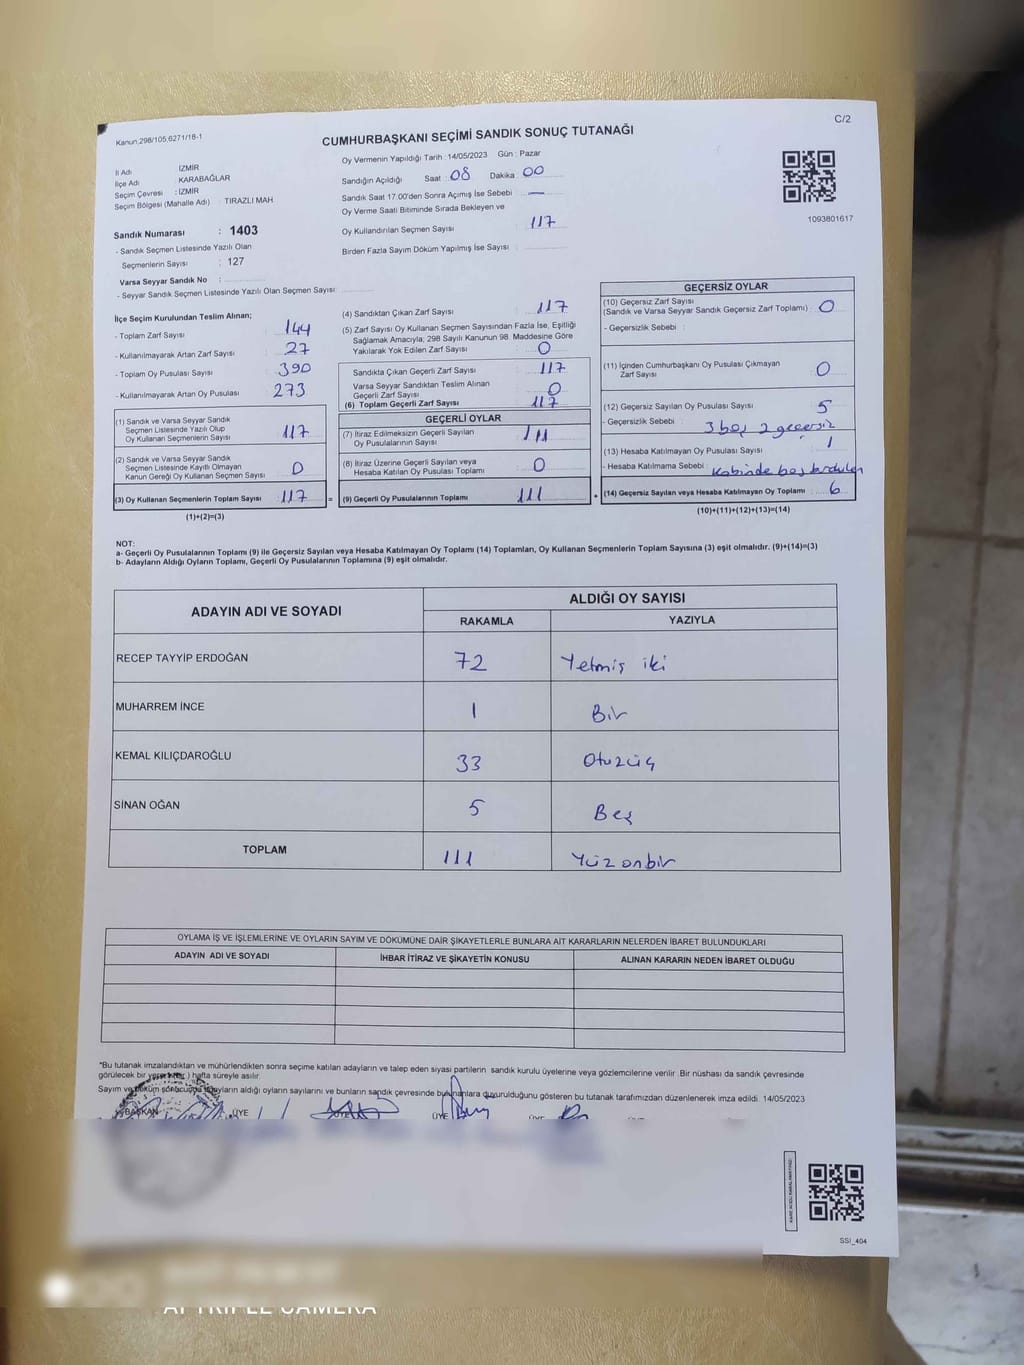 Kanun.298/105,6271/18-1
C/2
CUMHURBAŞKANI SEÇİMİ SANDIK SONUÇ TUTANAĞI
İl Adı : İZMİR
İlçe Adı : KARABAĞLAR
Seçim Çevresi : İZMİR
Seçim Bölgesi (Mahalle Adı) : TIRAZLI MAH
Sandık Numarası : 1403
- Sandık Seçmen Listesinde Yazılı Olan
Seçmenlerin Sayısı : 127
Varsa Seyyar Sandık No :
- Seyyar Sandık Seçmen Listesinde Yazılı Olan Seçmen Sayısı:
Oy Vermenin Yapıldığı Tarih : 14/05/2023 Gün : Pazar
Sandığın Açıldığı Saat : 08 Dakika : 00
Sandık Saat 17.00'den Sonra Açımış İse Sebebi : —
Oy Verme Saati Bitiminde Sırada Bekleyen ve
Oy Kullandırılan Seçmen Sayısı : 117
Birden Fazla Sayım Döküm Yapılmış İse Sayısı :
1093801617
İlçe Seçim Kurulundan Teslim Alınan;
- Toplam Zarf Sayısı : 144
- Kullanılmayarak Artan Zarf Sayısı : 27
- Toplam Oy Pusulası Sayısı : 390
- Kullanılmayarak Artan Oy Pusulası : 273
(1) Sandık ve Varsa Seyyar Sandık
Seçmen Listesinde Yazılı Olup
Oy Kullanan Seçmenlerin Sayısı : 117
(2) Sandık ve Varsa Seyyar Sandık
Seçmen Listesinde Kayıtlı Olmayan
Kanun Gereği Oy Kullanan Seçmen Sayısı : 0
(3) Oy Kullanan Seçmenlerin Toplam Sayısı : 117 =
(1)+(2)=(3)
(4) Sandıktan Çıkan Zarf Sayısı : 117
(5) Zarf Sayısı Oy Kullanan Seçmen Sayısından Fazla İse, Eşitliği
Sağlamak Amacıyla; 298 Sayılı Kanunun 98. Maddesine Göre
Yakılarak Yok Edilen Zarf Sayısı : 0
Sandıkta Çıkan Geçerli Zarf Sayısı : 117
Varsa Seyyar Sandıktan Teslim Alınan
Geçerli Zarf Sayısı : 0
(6) Toplam Geçerli Zarf Sayısı : 117
GEÇERLİ OYLAR
(7) İtiraz Edilmeksizin Geçerli Sayılan
Oy Pusulalarının Sayısı : 111
(8) İtiraz Üzerine Geçerli Sayılan veya
Hesaba Katılan Oy Pusulası Toplamı : 0
(9) Geçerli Oy Pusulalarının Toplamı : 111 +
GEÇERSİZ OYLAR
(10) Geçersiz Zarf Sayısı
(Sandık ve Varsa Seyyar Sandık Geçersiz Zarf Toplamı) : 0
- Geçersizlik Sebebi :
(11) İçinden Cumhurbaşkanı Oy Pusulası Çıkmayan
Zarf Sayısı : 0
(12) Geçersiz Sayılan Oy Pusulası Sayısı : 5
- Geçersizlik Sebebi : 3 boş 2 geçersiz
(13) Hesaba Katılmayan Oy Pusulası Sayısı : 1
- Hesaba Katılmama Sebebi : Kabinde boş
(14) Geçersiz Sayılan veya Hesaba Katılmayan Oy Toplamı : 6
(10)+(11)+(12)+(13)=(14)
NOT:
a- Geçerli Oy Pusulalarının Toplamı (9) ile Geçersiz Sayılan veya Hesaba Katılmayan Oy Toplamı (14) Toplamları, Oy Kullanan Seçmenlerin Toplam Sayısına (3) eşit olmalıdır. (9)+(14)=(3)
b- Adayların Aldığı Oyların Toplamı, Geçerli Oy Pusulalarının Toplamına (9) eşit olmalıdır.
ADAYIN ADI VE SOYADI
ALDIĞI OY SAYISI
RAKAMLA YAZIYLA
RECEP TAYYİP ERDOĞAN 72 Yetmiş iki
MUHARREM İNCE 1 Bir
KEMAL KILIÇDAROĞLU 33 Otuzüç
SİNAN OĞAN 5 Beş
TOPLAM 111 Yüz onbir
OYLAMA İŞ VE İŞLEMLERİNE VE OYLARIN SAYIM VE DÖKÜMÜNE DAİR ŞİKAYETLERLE BUNLARA AİT KARARLARIN NELERDEN İBARET BULUNDUKLARI
ADAYIN ADI VE SOYADI İHBAR İTİRAZ VE ŞİKAYETİN KONUSU ALINAN KARARIN NEDEN İBARET OLDUĞU
*Bu tutanak imzalandıktan ve mühürlendikten sonra seçime katılan adayların ve talep eden siyasi partilerin sandık kurulu üyelerine veya gözlemcilerine verilir .Bir nüshası da sandık çevresinde
görülecek bir yere ) hafta süreyle asılır.
Sayım ve döküm sonucunda adayların aldığı oyların sayılarını ve bunların sandık çevresinde bulunanlara duyurulduğunu gösteren bu tutanak tarafımızdan düzenlenerek imza edildi. 14/05/2023
BAŞKAN ÜYE ÜYE ÜYE
SSI_404
AI TRIPLE CAMERA